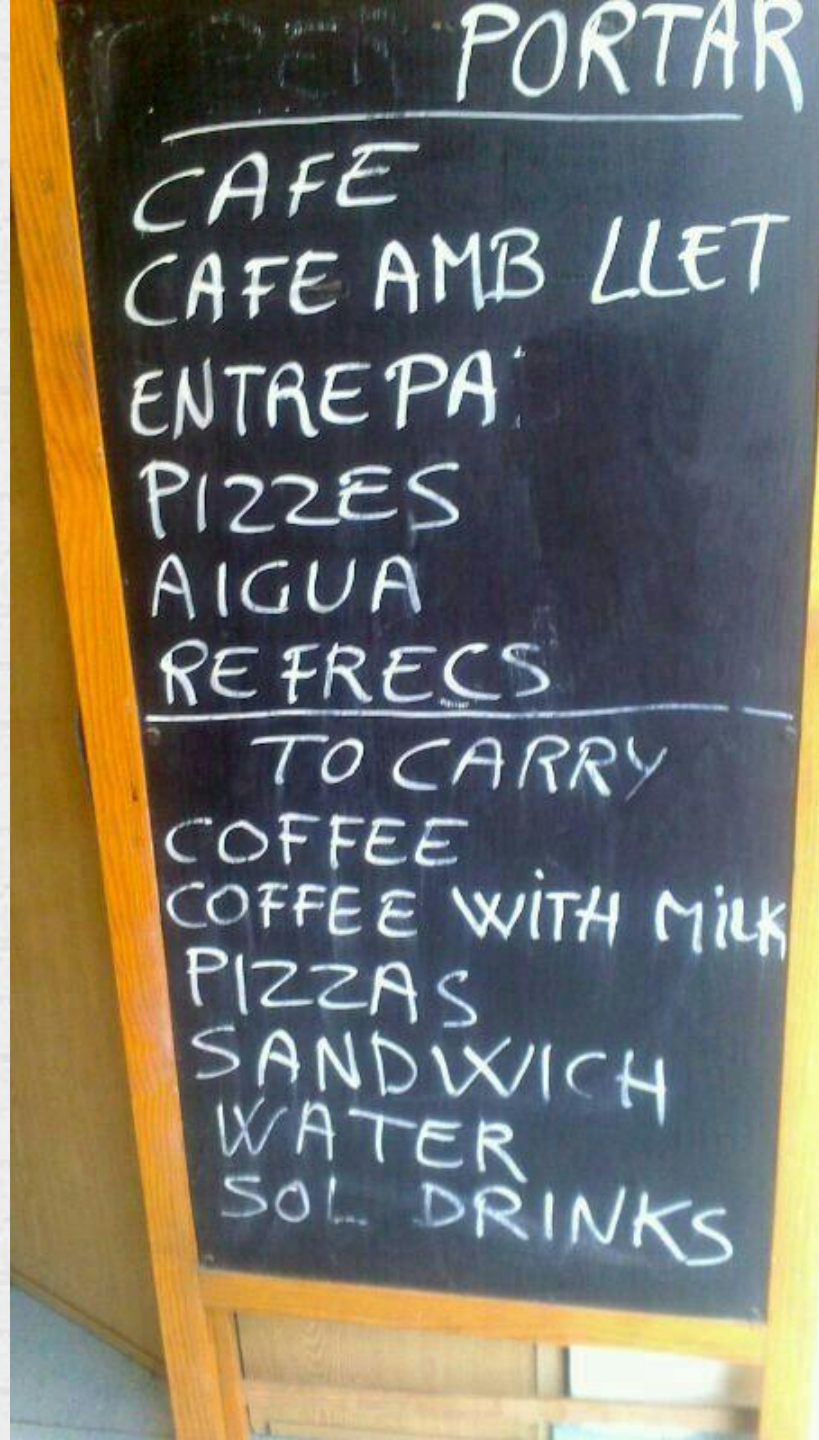 PER PORTAR
CAFE
CAFE AMB LLET
ENTREPA
PIZZES
AIGUA
REFRECS
TO CARRY
COFFEE
COFFEE WiTH MiLK
PIZZAS
SANDWICH
WATER
SOL DRINKS